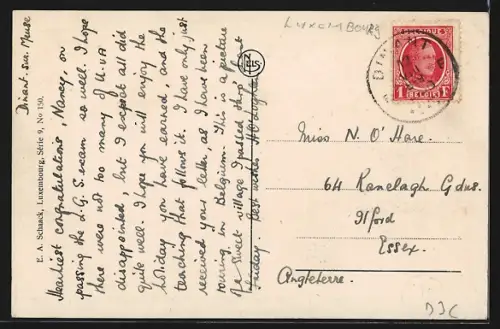 LUXEMBOURG
Dinant-sur-Meuse
Heartiest congratulations, Nancy, on
passing the L.G.S. exam so well. I hope
there were not too many of U-VA
disappointed, but I expect all did
quite well. I hope you will enjoy the
holiday you have earned, and the
teaching that follows it. I have only just
received your letter, as I have been
touring in Belgium. This is a picture
of a sweet village I passed thro'
Friday. Best wishes,
E. A. Schaack, Luxembourg, Série 9, No 150.
BELGIE
1 F
Miss N. O'Hare.
64 Ranelagh Gdns.
Ilford
Essex.
Angleterre.
D3C